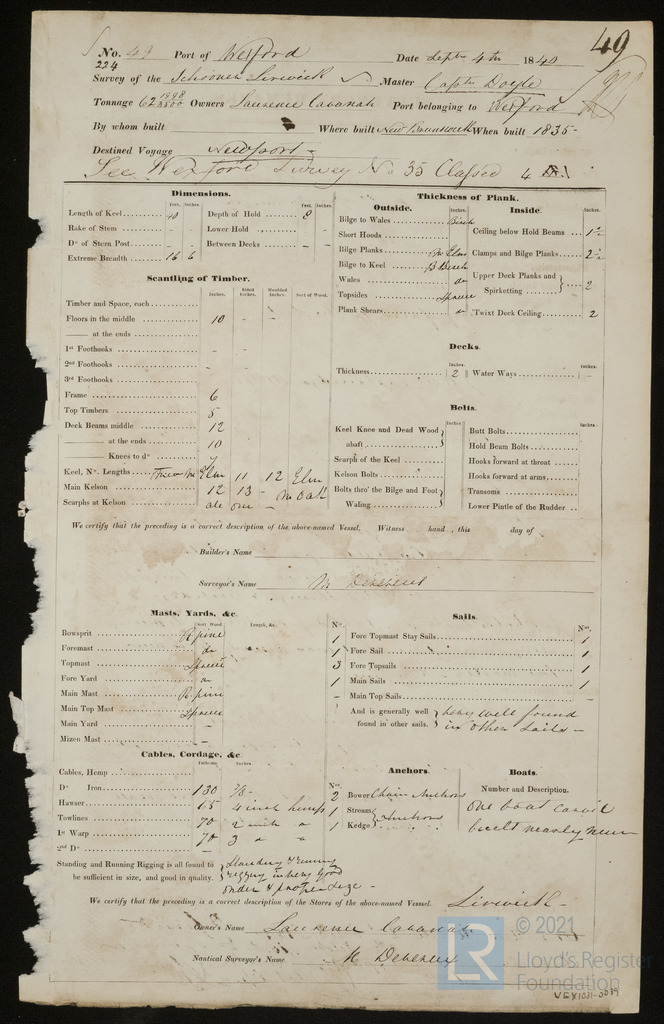 49
No. 49 Port of Wexford Date Septr 4th 1840
224
Survey of the Schooner Limerick Master Captn Doyle
Tonnage 62 Owners Laurence Cavanah Port belonging to Wexford
By whom built Where built New Brunswick When built 1835-
Destined Voyage Newport-
See Wexford Survey No 35 Classed 4
Dimensions.
Feet. Inches.
Length of Keel 40 Depth of Hold 8
Rake of Stem - - Lower Hold - -
Do of Stern Post - - Between Decks - -
Extreme Breadth 16 6
Scantling of Timber.
Inches. Sided Inches. Moulded Inches. Sort of Wood.
Timber and Space, each
Floors in the middle 10 - -
at the ends
1st Foothooks -
2nd Foothooks -
3rd Foothooks
Frame 6
Top Timbers 5
Deck Beams middle 12
at the ends 10
Knees to do 7
Keel, No. Lengths Elm 11 12 Elm
Main Kelson 12 13 - Oak
Scarphs at Kelson one -
Thickness of Plank.
Outside. Inches.
Bilge to Wales Birch
Short Hoods
Bilge Planks Elm
Bilge to Keel B Birch
Wales do
Topsides Spruce
Plank Shears do
Inside. Inches.
Ceiling below Hold Beams 1½
Clamps and Bilge Planks 2½
Upper Deck Planks and Spirketting 2
Twixt Deck Ceiling 2
Decks.
Inches. Inches.
Thickness 2 Water Ways -
Bolts.
Inches Inches.
Keel Knee and Dead Wood abaft
Scarph of the Keel
Kelson Bolts
Bolts thro' the Bilge and Foot Waling
Butt Bolts
Hold Beam Bolts
Hooks forward at throat
Hooks forward at arms
Transoms
Lower Pintle of the Rudder
We certify that the preceding is a correct description of the above-named Vessel. Witness hand, this day of
Builder's Name
Surveyor's Name M Devereux
Masts, Yards, &c.
Sort Wood Length, &c.
Bowsprit R pine
Foremast do
Topmast Spruce
Fore Yard do
Main Mast R. pine
Main Top Mast Spruce
Main Yard -
Mizen Mast -
Sails.
No. No.
1 Fore Topmast Stay Sails 1
1 Fore Sail 1
3 Fore Topsails 1
1 Main Sails 1
- Main Top Sails -
And is generally well found in other sails. Very well found in other Sails -
Cables, Cordage, &c.
Fathoms Inches
Cables, Hemp
Do Iron 130 7/8-
Hawser 65 4 inch hemp
Towlines 70 2 inch "
1st Warp 70 3 " "
2nd Do
Standing and Running Rigging is all found to be sufficient in size, and good in quality. Standing & running rigging in very good order & proper size -
Anchors.
No.
2 Bower Chain Anchors
1 Stream Anchors
1 Kedge
Boats.
Number and Description.
One boat
built nearly new
We certify that the preceding is a correct description of the Stores of the above-named Vessel. Limerick-
Owner's Name Laurence Cavanah
Nautical Surveyor's Name M Devereux
LR
© 2021
Lloyd's Register
Foundation
VEX1031-0039